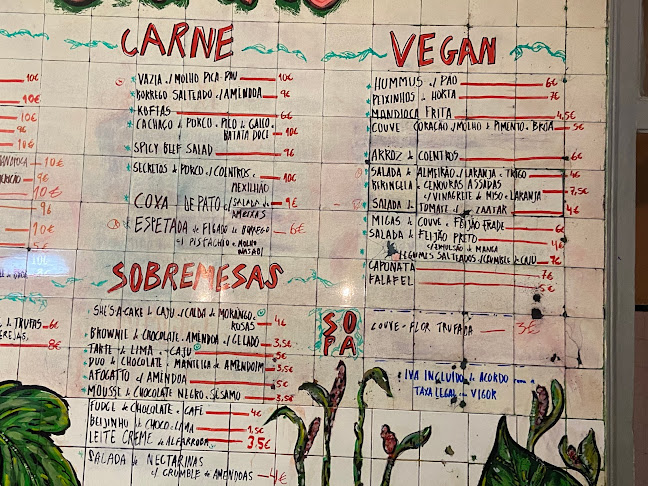 CARNE
VAZIA C/ MOLHO PICA-PAU 10€
BORREGO SALTEADO C/ AMENDOA 9€
KOFTAS 6€
CACHAÇO DE PORCO, PICO DE GALLO,
BATATA DOCE 10€
SPICY BEEF SALAD 9€
SECRETOS DE PORCO C/ COENTROS E
MEXILHÃO 10€
COXA DE PATO C/ SALADA DE
AMEIXAS 9€
ESPETADA DE FIGADO DE BORREGO 6€
C/ PISTACHIO E MOLHO
MASALA
SOBREMESAS
SHE'S-A-CAKE DE CAJU C/ CALDA DE MORANGO E
ROSAS 4€
BROWNIE DE CHOCOLATE E AMENDOA C/ GELADO 3,5€
TARTE DE LIMA E CAJU 5€
DUO DE CHOCOLATE E MANTEIGA DE AMENDOIM
AFOGATTO C/ AMENDOA 5€
MOUSSE DE CHOCOLATE NEGRO E SESAMO 3.5€
FUDGE DE CHOCOLATE E CAFÉ 4€
BEIJINHO DE CHOCO. LIMA 1.5€
LEITE CREME DE ALFARROBA 3.5€
SALADA DE NECTARINAS
C/ CRUMBLE DE AMENDOAS 4€
VEGAN
HUMMUS C/ PÃO 6€
PEIXINHOS DA HORTA 7€
MANDIOCA FRITA 4,5€
COUVE CORAÇÃO C/ MOLHO DE PIMENTO E BROA 5€
ARROZ DE COENTROS 6€
SALADA DE ALMEIRÃO C/ LARANJA E TRIGO 4€
BERINGELA E CENOURAS ASSADAS
C/ VINAGRETE DE MISO E LARANJA 7,5€
SALADA DE TOMATE C/ ZAATAR 4€
MIGAS DE COUVE E FEIJÃO FRADE 6€
SALADA DE FEIJÃO PRETO 4€
C/ EMULSÃO DE MANGA
LEGUMES SALTEADOS C/ CRUMBLE DE CAJU 7€
CAPONATA 7€
FALAFEL 5€
SOPA
COUVE-FLOR TRUFADA 3€
* IVA INCLUIDO DE ACORDO COM A
TAXA LEGAL EM VIGOR
10€
10€
10€
9€
10€
10€
10€
9€
10€
5€
DE TRUFAS 6€
CEREJAS,
8€